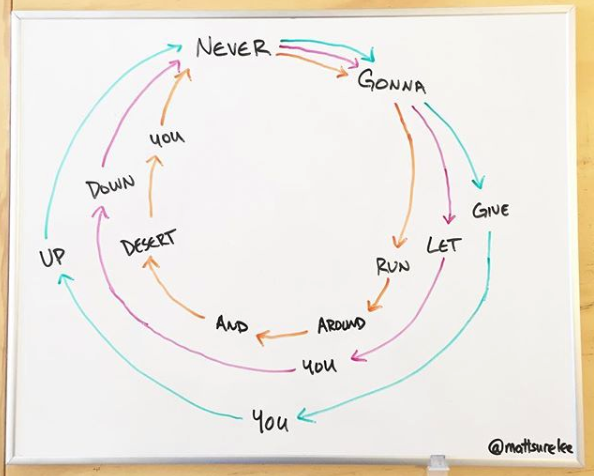 NEVER
GONNA
GIVE
YOU
UP
LET
YOU
DOWN
RUN
AROUND
AND
DESERT
YOU
@mattsurelee